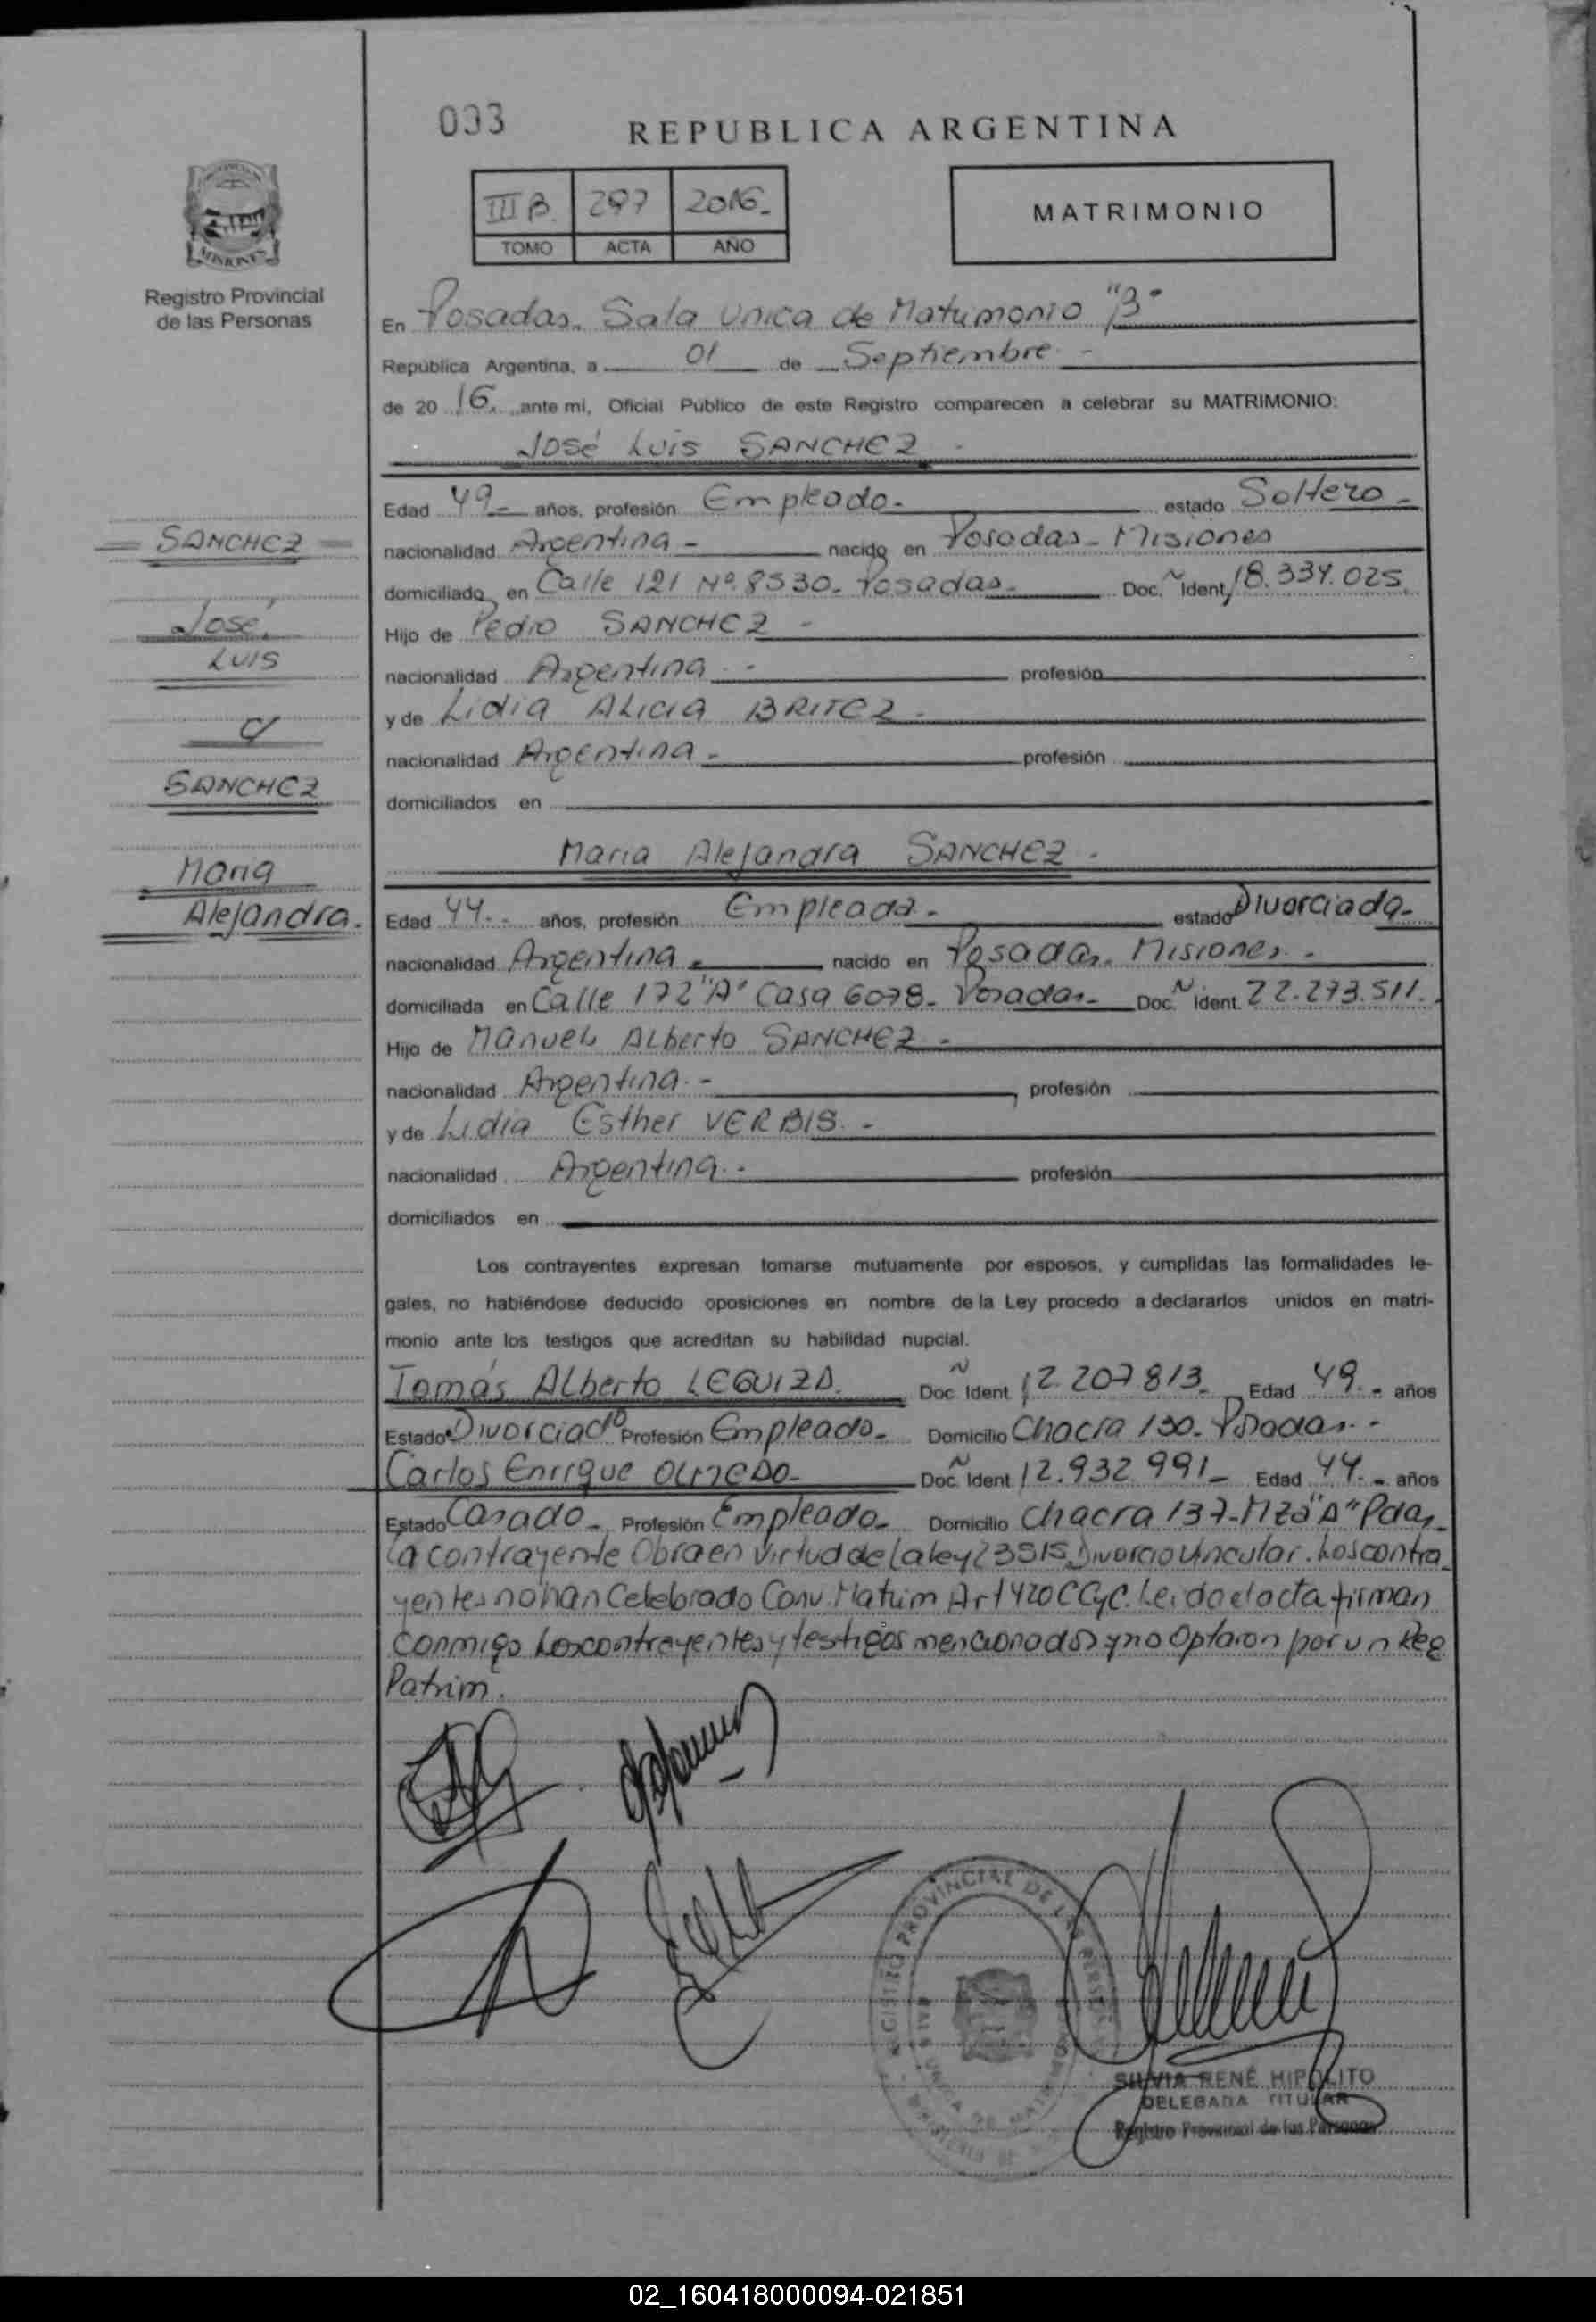 033
REPUBLICA ARGENTINA
III B. 297 2016.-
TOMO ACTA AÑO
MATRIMONIO
MISIONES
Registro Provincial
de las Personas
En Posadas. Sala Unica de Matrimonio "B"
República Argentina, a 01 de Septiembre -
de 20 16. ante mi, Oficial Público de este Registro comparecen a celebrar su MATRIMONIO:
José Luis SANCHEZ -
Edad 49.- años, profesión Empleado.- estado Soltero -
SANCHEZ
nacionalidad Argentina - nacido en Posadas - Misiones
domiciliado en Calle 121 Nº 8530. Posadas.- Doc. Ident. 18.334.025
José
Hijo de Pedro SANCHEZ -
LUIS
nacionalidad Argentina - profesión
y de Lidia ALicia BRITEZ -
C/
nacionalidad Argentina - profesión
SANCHEZ
domiciliados en
Maria Alejandra SANCHEZ -
Maria
Alejandra.
Edad 44.- años, profesión Empleada - estado Divorciada-
nacionalidad Argentina - nacido en Posadas. Misiones -
domiciliada en Calle 172 "A" Casa 6078 - Posadas - Doc. ident. 22.273.511.
Hija de Manuel ALberto SANCHEZ -
nacionalidad Argentina. - profesión
y de Lidia Esther VERBIS. -
nacionalidad Argentina. - profesión
domiciliados en
Los contrayentes expresan tomarse mutuamente por esposos, y cumplidas las formalidades le-
gales, no habiéndose deducido oposiciones en nombre de la Ley procedo a declararlos unidos en matri-
monio ante los testigos que acreditan su habilidad nupcial.
Tomás ALberto LEGUIZA. Doc Ident 12.207813. Edad 49.- años
Estado Divorciado Profesión Empleado.- Domicilio Chacra 130. Posadas. -
Carlos Enrique OLMEDO- Doc. Ident. 12.932.991- Edad 44.- años
Estado Casado - Profesión Empleado - Domicilio Chacra 137-Mzª "A" Pdas-
La contrayente Obra en Virtud de la ley 23515 Divorcio Vincular. Los contra
yentes no han Celebrado Conv. Matrim Art 420 CCyC. Leida el acta firman
conmigo Los contrayentes y testigos mencionados y no Optaron por un Reg
Patrim.
REGISTRO PROVINCIAL DE LAS PERSONAS
SILVIA RENÉ HIPOLITO
DELEGADA TITULAR
Registro Provincial de las Personas
02_160418000094-021851